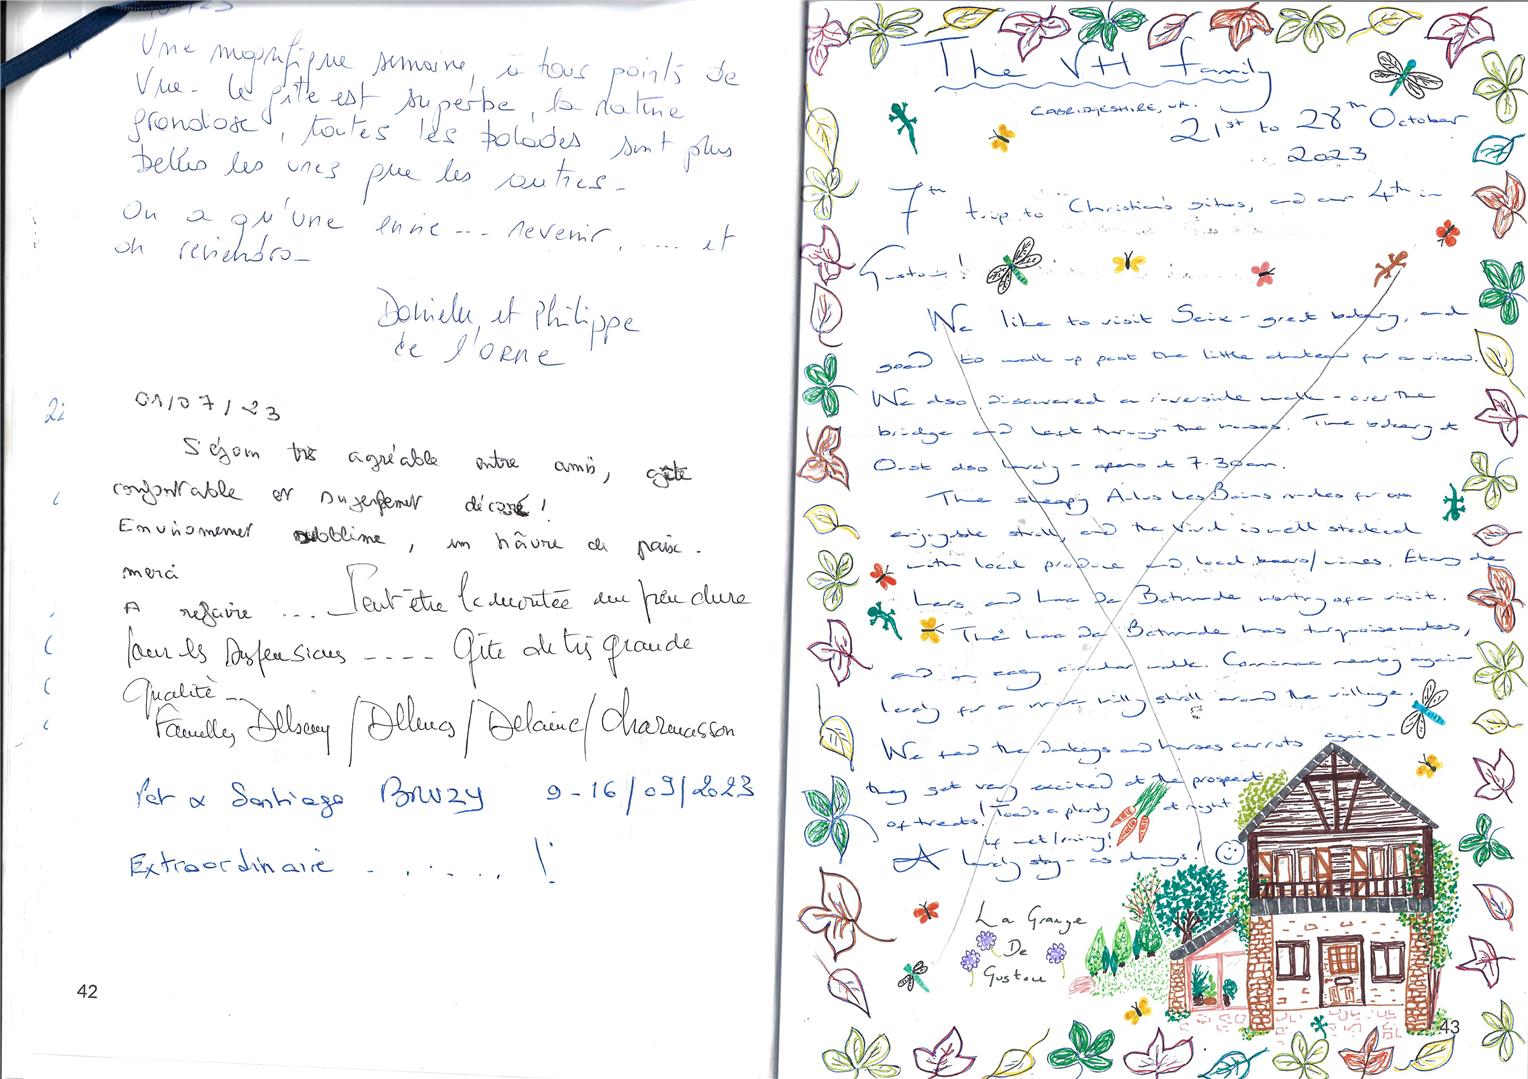 Une magnifique semaine, à tous points de
Vue. Le gîte est superbe, la nature
grandiose, toutes les balades sont plus
belles les unes que les autres.
On a qu'une envie ... revenir, ..... et
on reviendra.
et Philippe
de l'ORNE
01/07/23
Séjour très agréable entre amis, gîte
confortable et superbement décoré !
Environnement sublime, un hâvre de paix.
merci
A refaire ... Peut être la montée un peu dure
pour les suspensions .... Gîte de très grande
qualité ...
Familles / / / Charmasson
Pat & Santiago BRUZY 9-16/09/2023
Extraordinaire . . . . . . !
42
The VH family
CABRIDGESHIRE, UK.
21st to 28th October
2023
7th trip to Christian's gites, and our 4th in
Gustou!
We like to visit Seix - great bakery, and
good to walk up past the little chateau for a view.
We also discovered a riverside walk - over the
bridge and left through the houses. The bakery at
Oust also lovely - opens at 7.30am.
The sleepy Aulus Les Bains makes for an
enjoyable stroll, and the Vival is well stocked
with local produce and local beers/wines. Etang de
Lers and Lac De Bethmale worthy of a visit.
The Lac De Bethmale has turquoise waters,
and an easy circular walk. Cominac nearby again
lovely for a more hilly stroll around the village.
We feed the donkeys and horses carrots again -
they get very excited at the prospect
of treats! Toads a plenty at night
if wet/raining!
A lovely stay - as always!
La Grange
De
Gustou
43